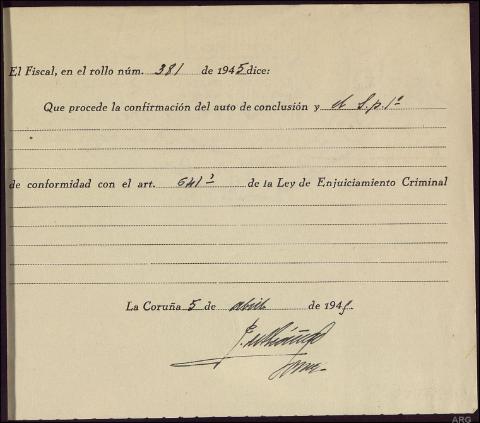 El Fiscal, en el rollo núm. 381 de 1945 dice:
Que procede la confirmación del auto de conclusión y el S.p. 1º
de conformidad con el art. 641 1º de la Ley de Enjuiciamiento Criminal
La Coruña 5 de abril de 1945.
ARG